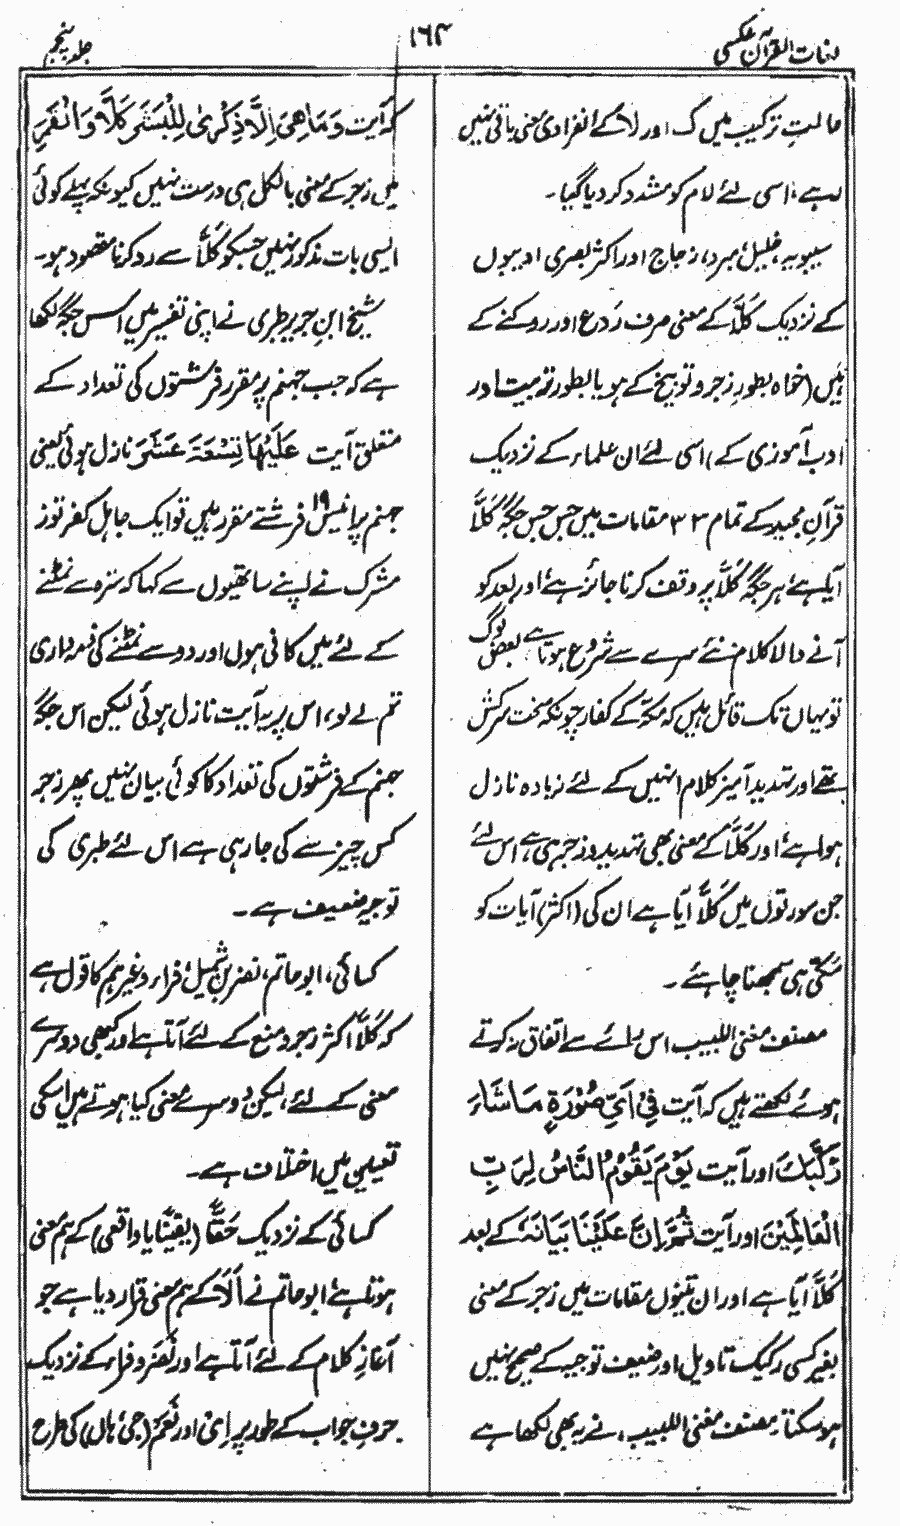 لغات القرآن عکسی
۱۶۴
جلد پنجم
حالتِ ترکیب میں ک اور لا کے انفرادی معنی باقی نہیں
رہے، اسی لئے لام کو مشدد کر دیا گیا۔
سیبویہ، خلیل، مبرد، زجاج اور اکثر بصری ادیبوں
کے نزدیک کَلَّا کے معنی صرف رَدع اور روکنے کے
ہیں (خواہ بطورِ زجر و توبیخ کے ہو یا بطور تربیت اور
ادب آموزی کے) اسی لئے ان علماء کے نزدیک
قرآنِ مجید کے تمام ۳۳ مقامات میں جس جس جگہ کَلَّا
آیا ہے، ہر جگہ کَلَّا پر وقف کرنا جائز ہے اور بعد کو
آنے والا کلام نئے سرے سے شروع ہوتا ہے بعض لوگ
تو یہاں تک قائل ہیں کہ مکہ کے کفار چونکہ سخت سرکش
تھے اور تہدید آمیز کلام انہیں کے لئے زیادہ نازل
ہوا ہے اور کَلَّا کے معنی بھی تہدید و زجر ہی ہے، اس لئے
جن سورتوں میں کَلَّا آیا ہے ان کی (اکثر) آیات کو
مکی ہی سمجھنا چاہئے۔
مصنف مغنی اللبیب اس رائے سے اتفاق نہ کرتے
ہوئے لکھتے ہیں کہ آیت فِیْ اَیِّ صُوْرَةٍ مَّا شَآءَ
رَكَّبَكَ اور آیت یَوْمَ یَقُوْمُ النَّاسُ لِرَبِّ
الْعَالَمِیْنَ اور آیت ثُمَّ اِنَّ عَلَیْنَا بَیَانَهٗ کے بعد
کَلَّا آیا ہے اور ان تینوں مقامات میں زجر کے معنی
بغیر کسی رکیک تاویل اور ضعیف توجیہ کے صحیح نہیں
ہو سکتا۔ مصنف مغنی اللبیب، نے یہ بھی لکھا ہے
کہ آیت وَمَا هِیَ اِلَّا ذِكْرٰی لِلْبَشَرِ كَلَّا وَالْقَمَرِ
میں زجر کے معنی بالکل ہی درست نہیں کیونکہ پہلے کوئی
ایسی بات مذکور نہیں جس کو کَلَّا سے رد کرنا مقصود ہو۔
شیخ ابنِ جریر طبری نے اپنی تفسیر میں اس جگہ لکھا
ہے کہ جب جہنم پر مقرر فرشتوں کی تعداد کے
متعلق آیت عَلَیْهَا تِسْعَةَ عَشَرَ نازل ہوئی یعنی
جہنم پر انیس ۱۹ فرشتے مقرر ہیں تو ایک جاہل کفر توز
مشرک نے اپنے ساتھیوں سے کہا کہ سترہ سے نمٹنے
کے لئے میں کافی ہوں اور دو سے نمٹنے کی ذمہ داری
تم لے لو، اس پر یہ آیت نازل ہوئی لیکن اس جگہ
جہنم کے فرشتوں کی تعداد کا کوئی بیان نہیں پھر زجر
کس چیز سے کی جا رہی ہے اس لئے طبری کی
توجیہ ضعیف ہے۔
کسائی، ابو حاتم، نضر بن شمیل، فراء وغیرہم کا قول ہے
کہ کَلَّا اکثر زجر و منع کے لئے آتا ہے اور کبھی دوسرے
معنی کے لئے، لیکن دوسرے معنی کیا ہوتے ہیں اسکی
تعیین میں اختلاف ہے۔
کسائی کے نزدیک حَقًّا (یقینًا یا واقعی) کے ہم معنی
ہوتا ہے ابو حاتم نے اَلَا کے ہم معنی قرار دیا ہے جو
آغازِ کلام کے لئے آتا ہے اور نَضر و فراء کے نزدیک
حرفِ جواب کے طور پر اِیْ اور نَعَمْ (جی، ہاں) کی طرح